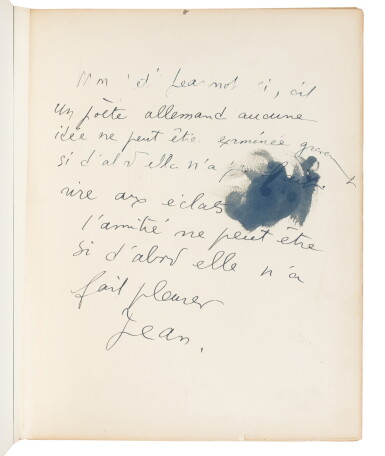 un poète allemand aucune
idée ne peut être exprimée gravement
si d'abord elle n'a
rire aux éclats
l'amitié ne peut être
si d'abord elle n'a
fait pleurer
Jean.